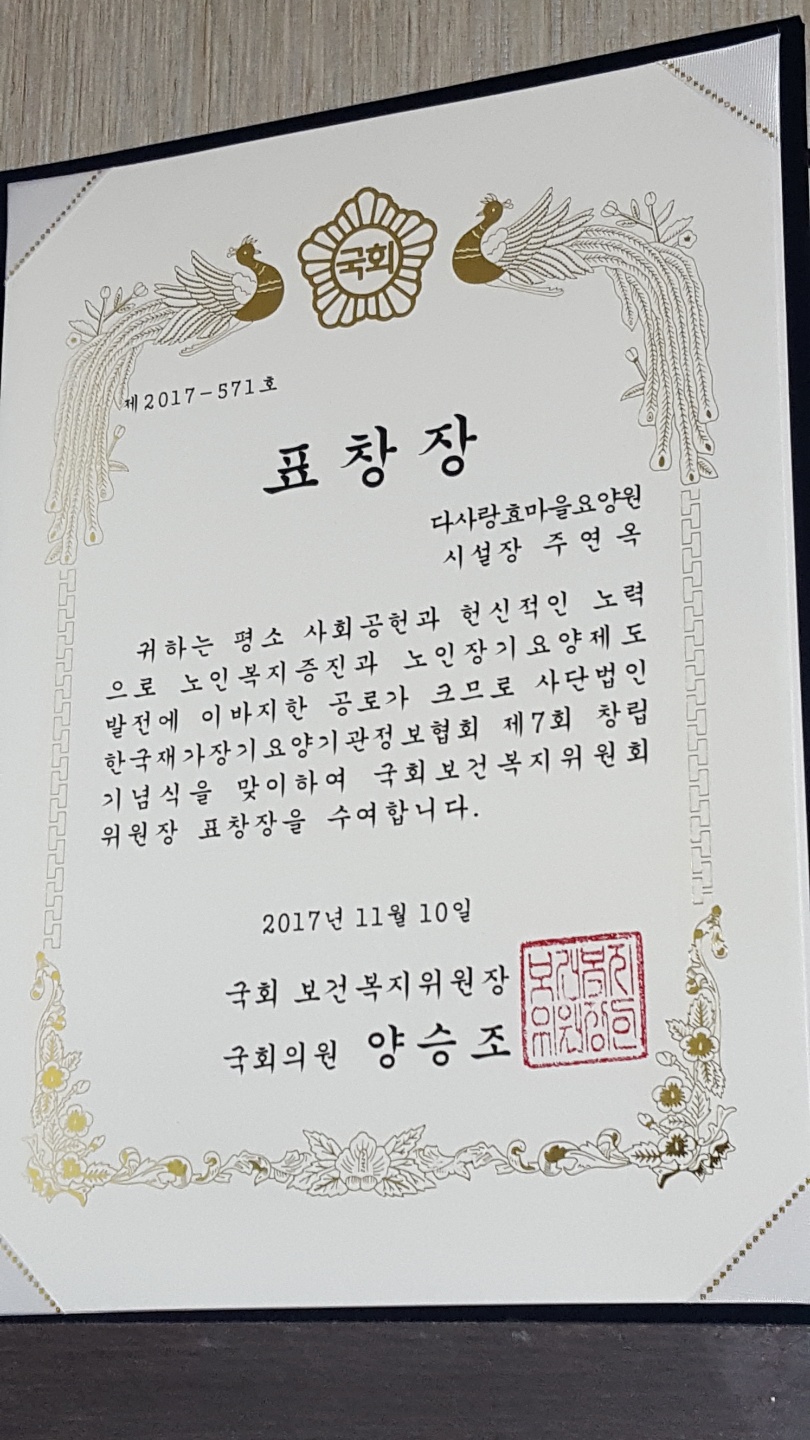 국회
제2017-571호
표창장
다사랑효마을요양원
시설장 주연옥
귀하는 평소 사회공헌과 헌신적인 노력
으로 노인복지증진과 노인장기요양제도
발전에 이바지한 공로가 크므로 사단법인
한국재가장기요양기관정보협회 제7회 창립
기념식을 맞이하여 국회보건복지위원회
위원장 표창장을 수여합니다.
2017년 11월 10일
국회 보건복지위원장
국회의원 양승조
보건복지
위원장